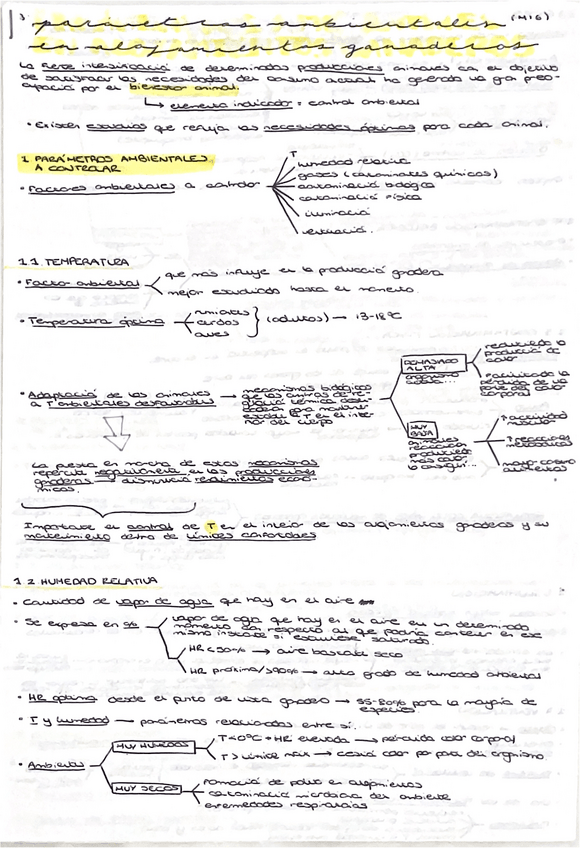 parámetros ambientales (M16)
en alojamientos ganaderos
La fuerte intensificación de determinadas producciones animales con el objetivo
de satisfacer las necesidades del consumo actual ha generado una gran preo-
cupación por el bienestar animal.
elemento indicador = control ambiental
• Existen estudios que reflejan las necesidades óptimas para cada animal.
1. PARÁMETROS AMBIENTALES
A CONTROLAR
• Factores ambientales a controlar
T
humedad relativa
gases (contaminantes químicos)
contaminación biológica
contaminación física
iluminación
ventilación.
1.1. TEMPERATURA
• Factor ambiental
que más influye en la producción ganadera
mejor estudiado hasta el momento.
• Temperatura óptima
rumiantes
cerdos
aves
(adultos) → 13-18°C
• Adaptación de los animales
a T ambientales desfavorables
→ mecanismos biológicos
que les
térmica
para mantener
estable la T en el inte-
rior del cuerpo
DEMASIADO
ALTA
organismo
reduciendo la
producción de
calor
facilitando la
pérdida de
calor
corporal
MUY
BAJA
animales
reaccionan
produciendo
más calor
lo consiguen...
↑ actividad
muscular
↑ reacciones
metabólicas
mayor consumo
alimentos
La puesta en marcha de estos mecanismos
repercute negativamente en las producciones
ganaderas → disminución rendimientos econó-
micos.
Importante el control de T en el interior de los alojamientos ganaderos y su
mantenimiento dentro de límites confortables
1.2. HUMEDAD RELATIVA
• Cantidad de vapor de agua que hay en el aire
• Se expresa en %
vapor de agua que hay en el aire en un determinado
momento con respecto al que podría contener en ese
mismo instante si estuviese saturado.
HR <50% → aire bastante seco
HR próxima/>90% → alto grado de humedad ambiental
• HR óptima desde el punto de vista ganadero → 55-80% para la mayoría de
especies
• T y humedad → parámetros relacionados entre sí.
• Ambientes
MUY HÚMEDOS
T<0°C + HR elevada → pérdida calor corporal
T > límite máx → cesión calor por parte del organismo
MUY SECOS
Formación de polvo en alojamientos
contaminación microbiana del ambiente
enfermedades respiratorias